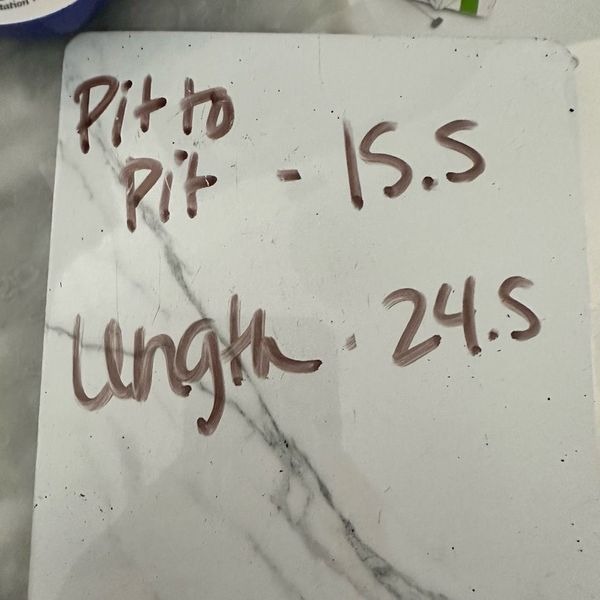 Pit to
Pit - 15.5
Length - 24.5